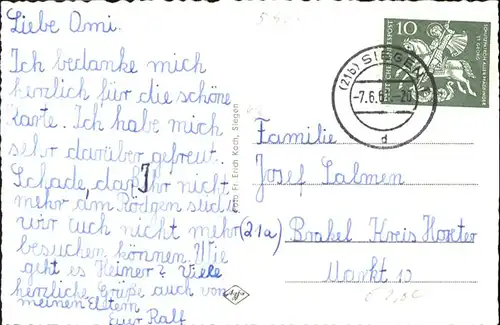 Liebe Omi.
Ich bedanke mich
herzlich für die schöne
Karte. Ich habe mich
sehr darüber gefreut.
Schade, daß Ihr nicht
mehr am Rödgen seid
wir auch nicht mehr
besuchen können. Wie
geht es Heiner? Viele
herzliche Grüße auch von
meinen Eltern
Euer Ralf
Foto Fr. Erich Koch, Siegen
10
DEUTSCHE BUNDESPOST
ST. GEORG
(21b) SIEGEN
-7.6.6 -20
d
Familie
Josef Salmen
(21a) Brakel Kreis Höxter
Markt 12
Agfa